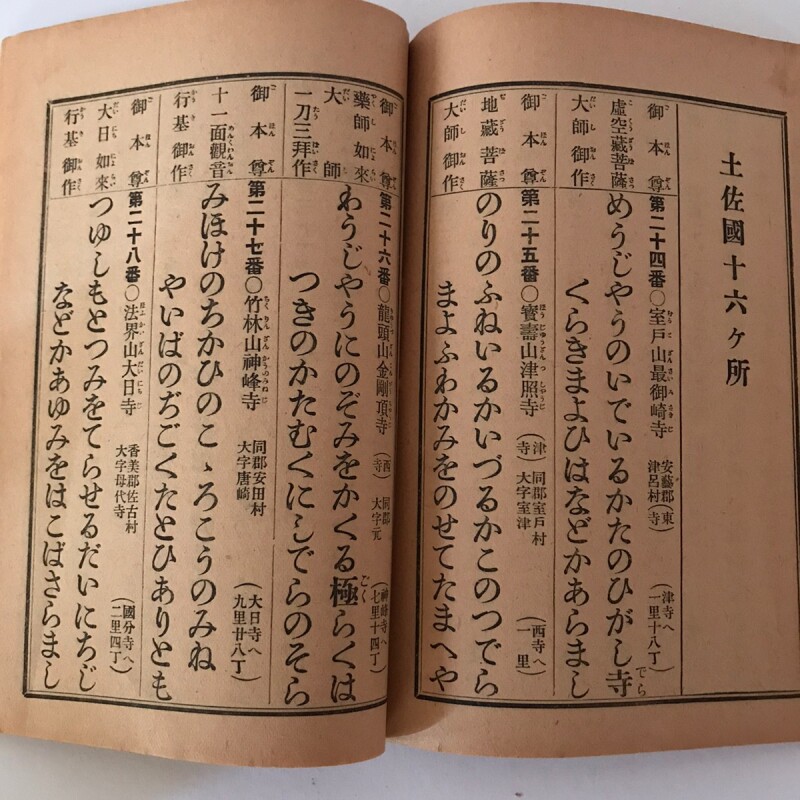 土佐國十六ヶ所
御本尊
虛空藏菩薩
大師御作
第二十四番○室戸山最御崎寺
安藝郡(東
津呂村(寺)
(津寺へ
一里十八丁)
めうじやうのいでいるかたのひがし寺
くらきまよひはなどかあらまし
御本尊
地藏菩薩
大師御作
第二十五番○寶壽山津照寺
(津
寺)
同郡室戸村
大字室津
(西寺へ
一里)
のりのふねいるかいづるかこのつでら
まよふわかみをのせてたまへや
御本尊
藥師如來
大師
一刀三拜作
第二十六番○龍頭山金剛頂寺
(西
寺)
同郡
大字元
(神峰寺へ
七里十四丁)
わうじやうにのぞみをかくる極らくは
つきのかたむくにしでらのそら
御本尊
十一面觀音
行基御作
第二十七番○竹林山神峰寺
同郡安田村
大字唐崎
(大日寺へ
九里廿八丁)
みほけのちかひのこゝろこうのみね
やいばのぢごくたとひありとも
御本尊
大日如來
行基御作
第二十八番○法界山大日寺
香美郡佐古村
大字母代寺
(國分寺へ
二里四丁)
つゆしもとつみをてらせるだいにちじ
などかあゆみをはこばさらまし